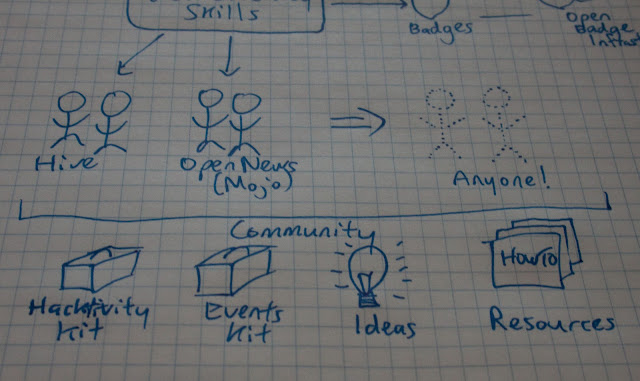 Skills
Badges
Open
Badge
Hive
OpenNews
(Mojo)
Anyone!
Community
HowTo
Hacktivity
Kit
Events
Kit
Ideas
Resources